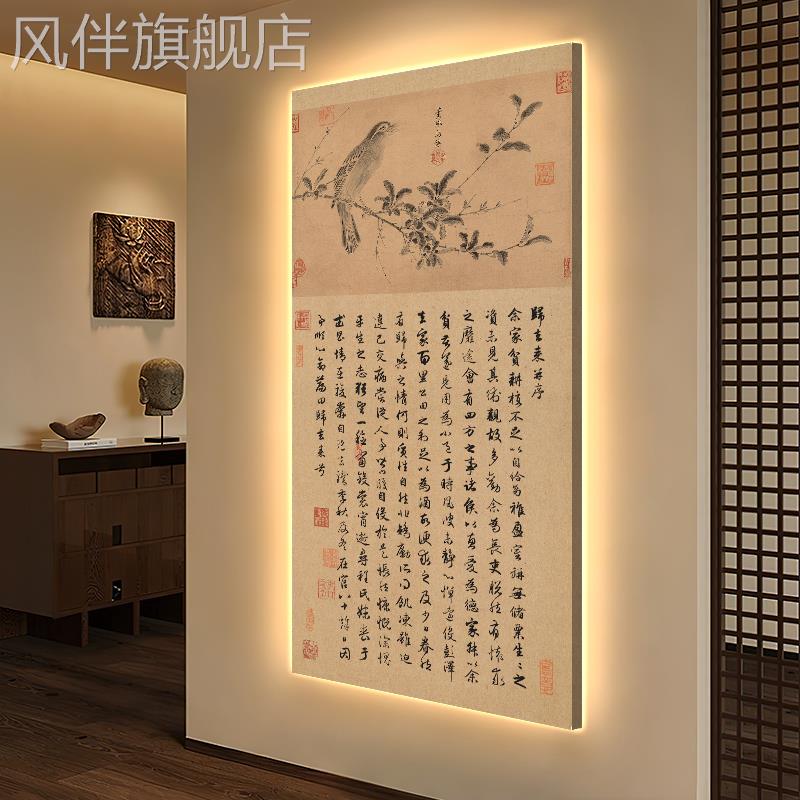 风伴旗舰店
歸去來并序
余家貧耕植不足以自給幼稚盈室缾無儲粟生生之
資未見其術親故多勸余為長吏脫然有懷求
之靡途會有四方之事諸侯以惠愛為德家叔以余
貧苦遂見用為小邑于時風波未靜心憚遠役彭澤
去家百里公田之利足以為酒故便求之及少日眷然
有歸與之情何則質性自然非矯勵所得飢凍雖迫
違己交病嘗從人事皆口腹自役於是悵然慷慨深愧
平生之志猶望一稔當斂裳宵逝尋程氏妹喪于
武昌情在駿奔自免去職季秋及冬在官八十餘日因
事順心命篇曰歸去來兮